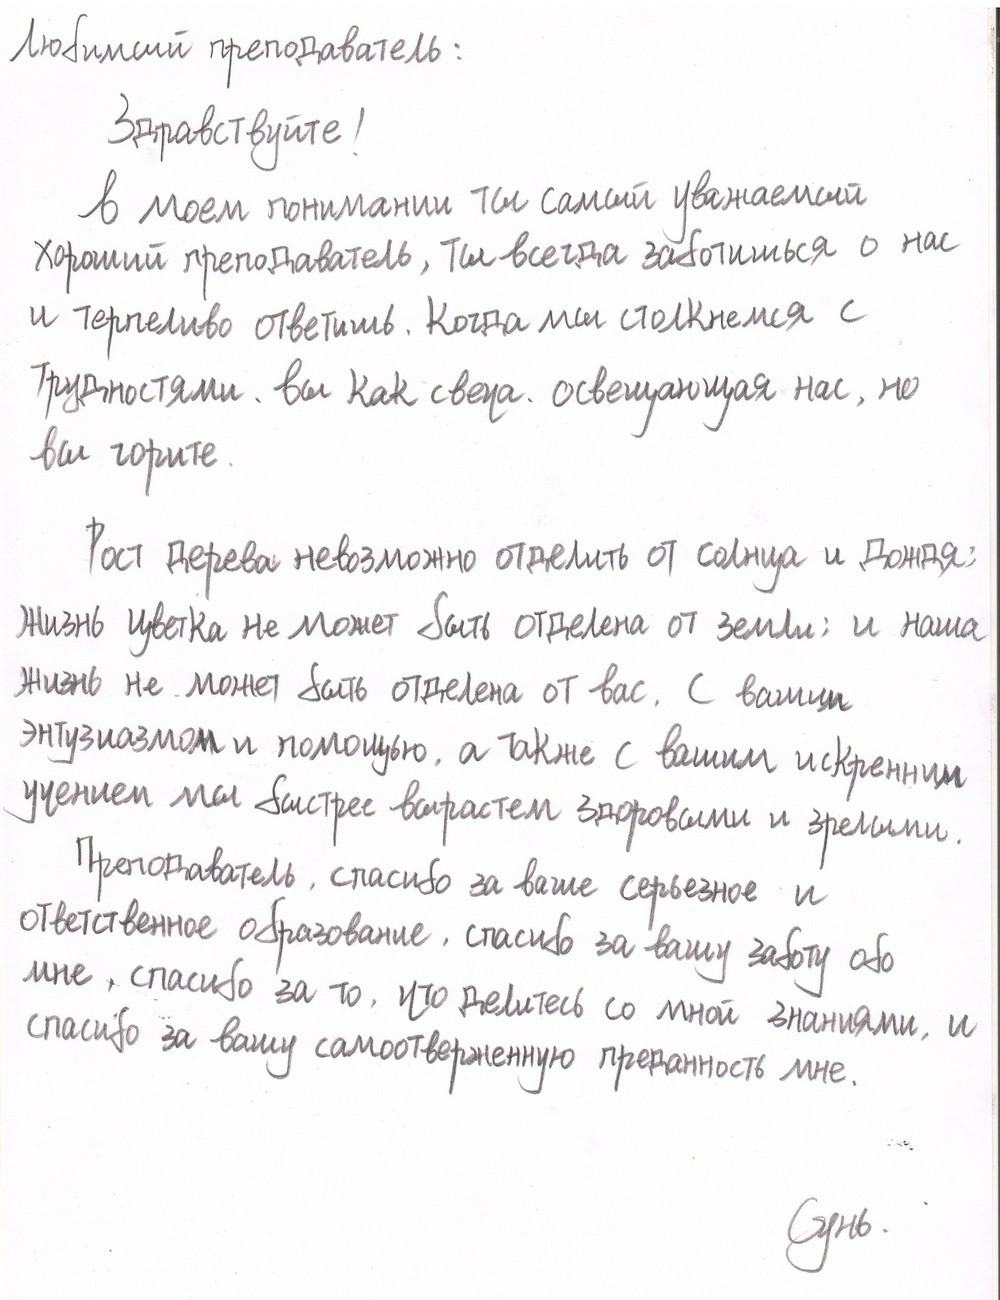 Любимый преподаватель:
Здравствуйте!
В моем понимании ты самый уважаемый
хороший преподаватель, ты всегда заботишься о нас
и терпеливо ответишь. Когда мы столкнемся с
трудностями. вы как свеча. освещающая нас, но
вы горите.
Рост дерева невозможно отделить от солнца и дождя;
жизнь цветка не может быть отделена от земли; и наша
жизнь не может быть отделена от вас. С вашим
энтузиазмом и помощью, а также с вашим искренним
учением мы быстрее вырастем здоровыми и зрелыми.
Преподаватель, спасибо за ваше серьезное и
ответственное образование, спасибо за вашу заботу обо
мне, спасибо за то, что делитесь со мной знаниями, и
спасибо за вашу самоотверженную преданность мне.
Сунь.